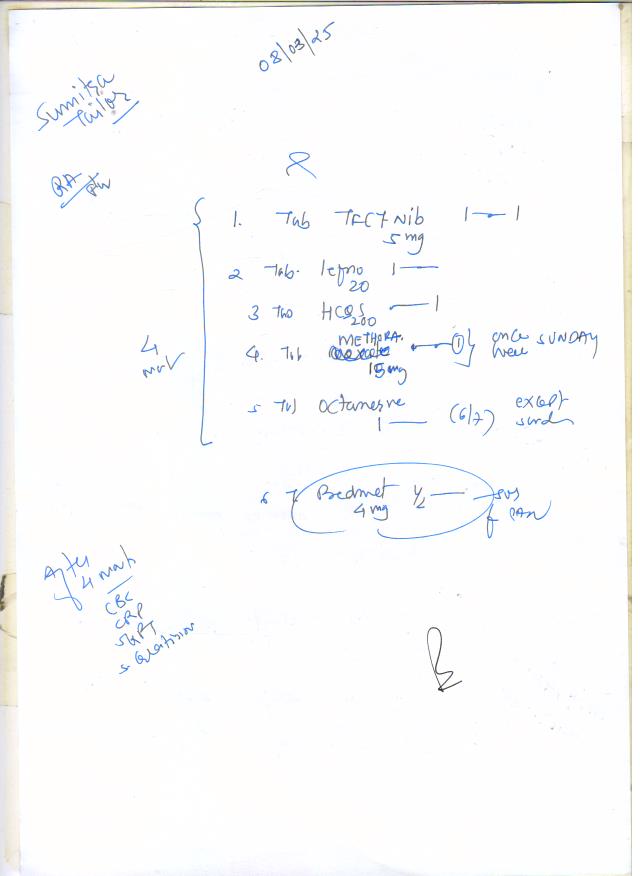 08/03/25
Sumitra
Tailor
RA
1. Tab TFCT-Nib 1 — 1
5 mg
2 Tab. lefno 1 —
20
3 Tab HCQS — 1
200
4. Tab METHORA. — 1 } once week SUNDAY
15mg
4
5 Tab
1 — (6/7) except
6 T. Bredmet 1/2 — sos
4 mg f PAIN
After
4 month
CBC
CRP
SGPT
s. Creatinine